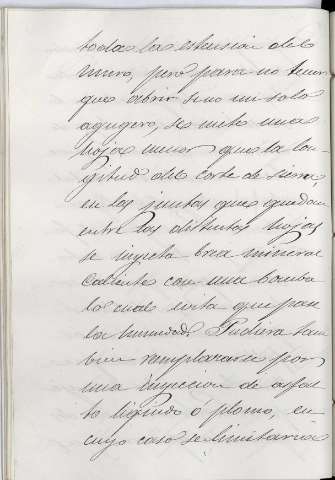 toda la estension del
muro, pero para no tener
que abrir sino un solo
agugero, se mete una
hoja menor que la lon-
gitud del corte de sierra,
en las juntas que quedan
entre las distintas hojas
se inyecta brea mineral
caliente con una bomba
la cual evita que pase
la humedad. Pudiera tam
bien remplazarse por
una inyeccion de asfal
to liquido ó plomo, en
cuyo caso se limitaria